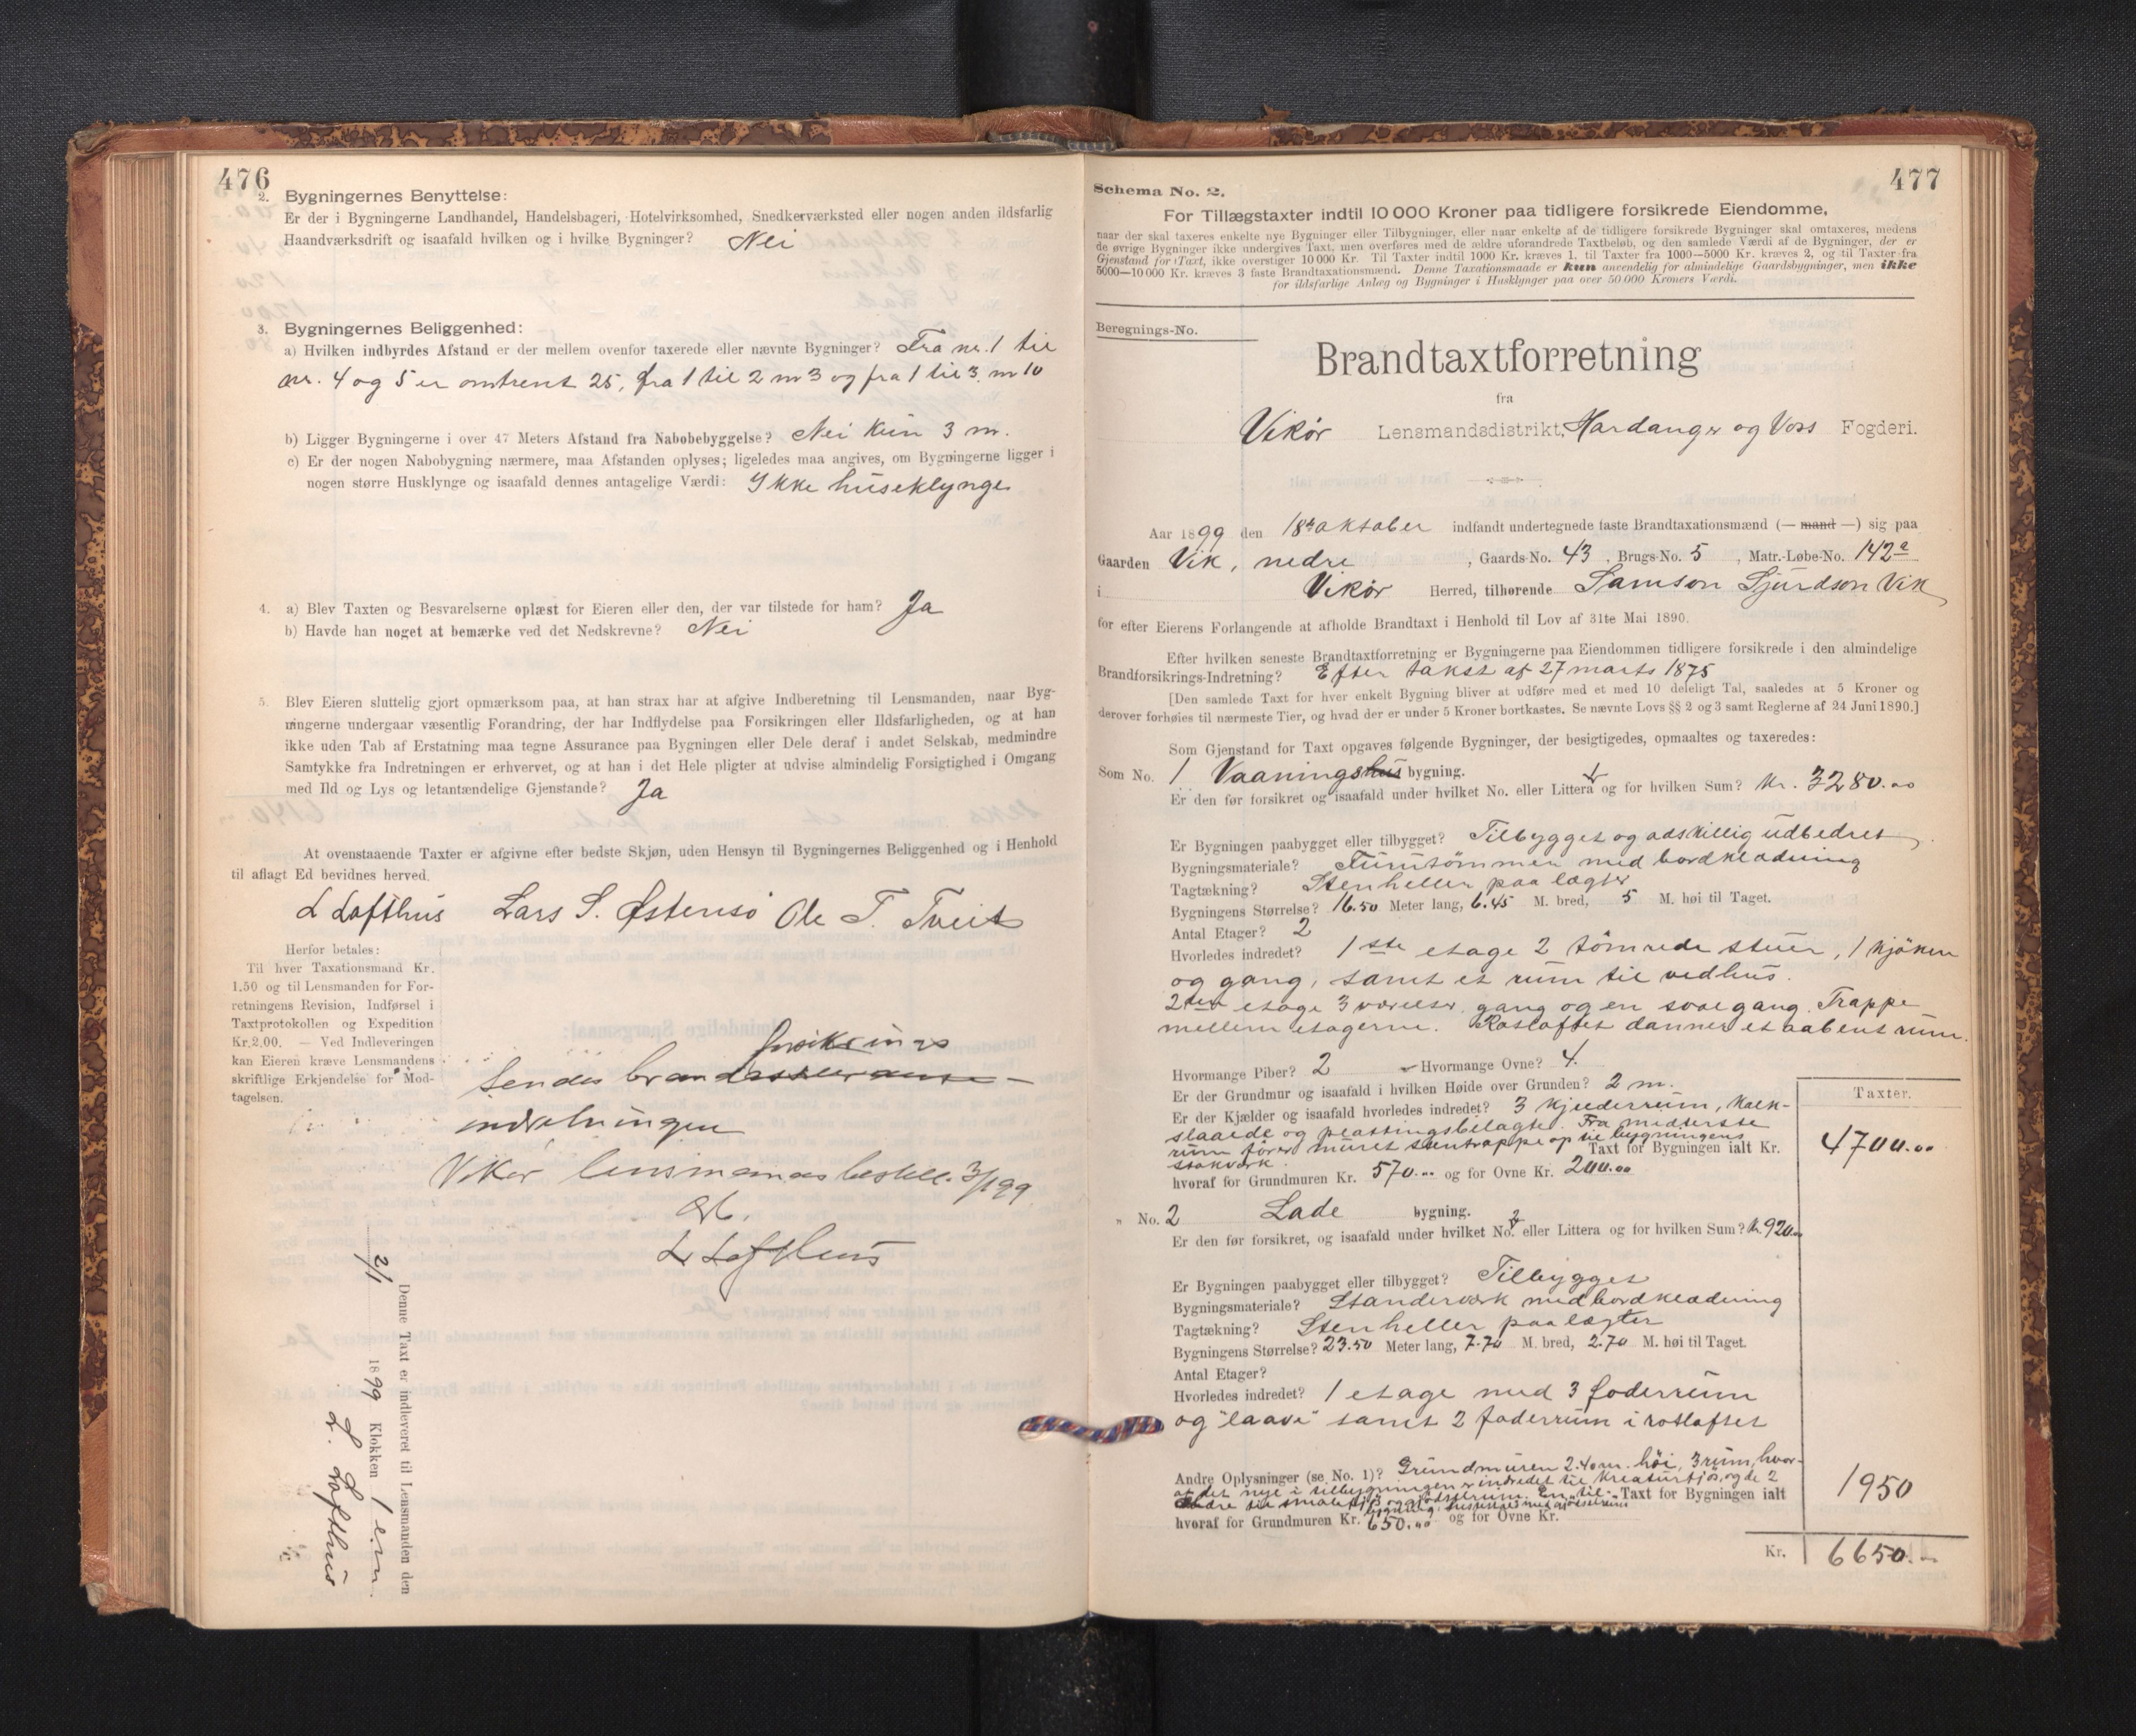 476
2. Bygningernes Benyttelse:
Er der i Bygningerne Landhandel, Handelsbageri, Hotelvirksomhed, Snedkerværksted eller nogen anden ildsfarlig
Haandværksdrift og isaafald hvilken og i hvilke Bygninger? Nei
3. Bygningernes Beliggenhed:
a) Hvilken indbyrdes Afstand er der mellem ovenfor taxerede eller nævnte Bygninger? Fra nr. 1 til
nr. 4 og 5 er omtrent 25, fra 1 til 2 m 3 og fra 1 til 3. m 10
b) Ligger Bygningerne i over 47 Meters Afstand fra Nabobebyggelse? Nei kun 3 m.
c) Er der nogen Nabobygning nærmere, maa Afstanden oplyses; ligeledes maa angives, om Bygningerne ligger i
nogen større Husklynge og isaafald dennes antagelige Værdi: Ikke huseklynge
4. a) Blev Taxten og Besvarelserne oplæst for Eieren eller den, der var tilstede for ham? Ja
b) Havde han noget at bemærke ved det Nedskrevne? Nei
5. Blev Eieren sluttelig gjort opmærksom paa, at han strax har at afgive Indberetning til Lensmanden, naar Byg-
ningerne undergaar væsentlig Forandring, der har Indflydelse paa Forsikringen eller Ildsfarligheden, og at han
ikke uden Tab af Erstatning maa tegne Assurance paa Bygningen eller Dele deraf i andet Selskab, medmindre
Samtykke fra Indretningen er erhvervet, og at han i det Hele pligter at udvise almindelig Forsigtighed i Omgang
med Ild og Lys og letantændelige Gjenstande? Ja
At ovenstaaende Taxter er afgivne efter bedste Skjøn, uden Hensyn til Bygningernes Beliggenhed og i Henhold
til aflagt Ed bevidnes herved.
L Lofthus Lars S. Østensö Ole T. Tveit
Herfor betales:
Til hver Taxationsmand Kr.
1.50 og til Lensmanden for For-
retningens Revision, Indførsel i
Taxtprotokollen og Expedition
Kr. 2,00. — Ved Indleveringen
kan Eieren kræve Lensmandens
skriftlige Erkjendelse for Mod-
tagelsen.
forsikrings
Sendes brandassurance-
indretningen
Vikør lensmandsbestill. 3/1 99
L Lofthus
Denne Taxt er indleveret til Lensmanden den
2/1 1899 Klokken 1 em.
L. Lofthus
477
Schema No. 2.
For Tillægstaxter indtil 10 000 Kroner paa tidligere forsikrede Eiendomme,
naar der skal taxeres enkelte nye Bygninger eller Tilbygninger, eller naar enkelte af de tidligere forsikrede Bygninger skal omtaxeres, medens
de øvrige Bygninger ikke undergives Taxt, men overføres med de ældre uforandrede Taxtbeløb, og den samlede Værdi af de Bygninger, der er
Gjenstand for Taxt, ikke overstiger 10 000 Kr. Til Taxter indtil 1000 Kr. kræves 1, til Taxter fra 1000—5000 Kr. kræves 2, og til Taxter fra
5000—10 000 Kr. kræves 3 faste Brandtaxationsmænd. Denne Taxationsmaade er kun anvendelig for almindelige Gaardsbygninger, men ikke
for ildsfarlige Anlæg og Bygninger i Husklynger paa over 50 000 Kroners Værdi.
Beregnings-No.
Brandtaxtforretning
fra
Vikør Lensmandsdistrikt, Hardanger og Voss Fogderi.
Aar 1899 den 18de oktober indfandt undertegnede faste Brandtaxationsmænd (— mand —) sig paa
Gaarden Vik, nedre, Gaards-No. 43, Brugs-No. 5, Matr.-Løbe-No. 142a
i Vikør Herred, tilhørende Samson Sjurdson Vik
for efter Eierens Forlangende at afholde Brandtaxt i Henhold til Lov af 31te Mai 1890.
Efter hvilken seneste Brandtaxtforretning er Bygningerne paa Eiendommen tidligere forsikrede i den almindelige
Brandforsikrings-Indretning? Efter takst af 27 marts 1875
[Den samlede Taxt for hver enkelt Bygning bliver at udføre med et med 10 deleligt Tal, saaledes at 5 Kroner og
derover forhøies til nærmeste Tier, og hvad der er under 5 Kroner bortkastes. Se nævnte Lovs §§ 2 og 3 samt Reglerne af 24 Juni 1890.]
Som Gjenstand for Taxt opgaves følgende Bygninger, der besigtigedes, opmaaltes og taxeredes:
Som No. 1 Vaaningshus bygning.
Er den før forsikret og isaafald under hvilket No. eller Littera 1 og for hvilken Sum? Kr. 3280.00
Er Bygningen paabygget eller tilbygget? Tilbygget og adskillig udbedret
Bygningsmateriale? Furutömmer med bordklædning
Tagtækning? Stenheller paa lægter
Bygningens Størrelse? 16.50 Meter lang, 6.45 M. bred, 5 M. høi til Taget.
Antal Etager? 2
Hvorledes indredet? 1ste etage 2 tömrede stuer, 1 kjöken
og gang, samt et rum til vedhus.
2den etage 3 værelser, gang og en svalgang. Trappe
mellem etagerne. Rosloftet danner et aabent rum.
Hvormange Piber? 2 Hvormange Ovne? 4.
Er der Grundmur og isaafald i hvilken Høide over Grunden? 2 m.
Er der Kjælder og isaafald hvorledes indredet? 3 kjelderrum, kalk-
slaaede og plastringsbelagte. Fra midterste
rum förer muret stentrappe op til bygningens
stokværk.
Taxt for Bygningen ialt Kr.
hvoraf for Grundmuren Kr. 570.00 og for Ovne Kr. 200.00
Taxter.
4700.00
" No. 2 Lade bygning.
Er den før forsikret, og isaafald under hvilket No. 2 eller Littera og for hvilken Sum? Kr. 920.00
Er Bygningen paabygget eller tilbygget? Tilbygget
Bygningsmateriale? Standerværk med bordklædning
Tagtækning? Stenheller paa lægter
Bygningens Størrelse? 23.50 Meter lang, 7.70 M. bred, 2.70 M. høi til Taget.
Antal Etager?
Hvorledes indredet? 1 etage med 3 foderrum
og "laave" samt 2 foderrum i rosloftet
Andre Oplysninger (se No. 1)? Grundmuren 2.40 m. höi, 3 rum, hvor-
af det nye i tilbygningen er indredet til kreaturfjös, og de 2
andre til smalefjös og gjödselrum. En til-
Taxt for Bygningen ialt
hvoraf for Grundmuren Kr. 650.00 og for Ovne Kr.
1950
Kr. 6650.-